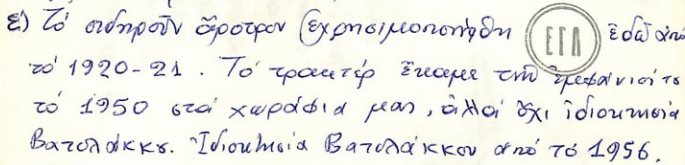 ε) Τό σιδηροῦν ἄροτρον ἐχρησιμοποιήθη ΕΓΛ ἐδῶ ἀπό
τό 1920-21. Τό τρακτέρ ἔκαμε τήν ἐμφάνισί το
τό 1950 στά χωράφια μας, ἀλλά ὄχι ἰδιοκτησία
Βατολάκκου. Ἰδιοκτησία Βατολάκκου ἀπό τό 1956.